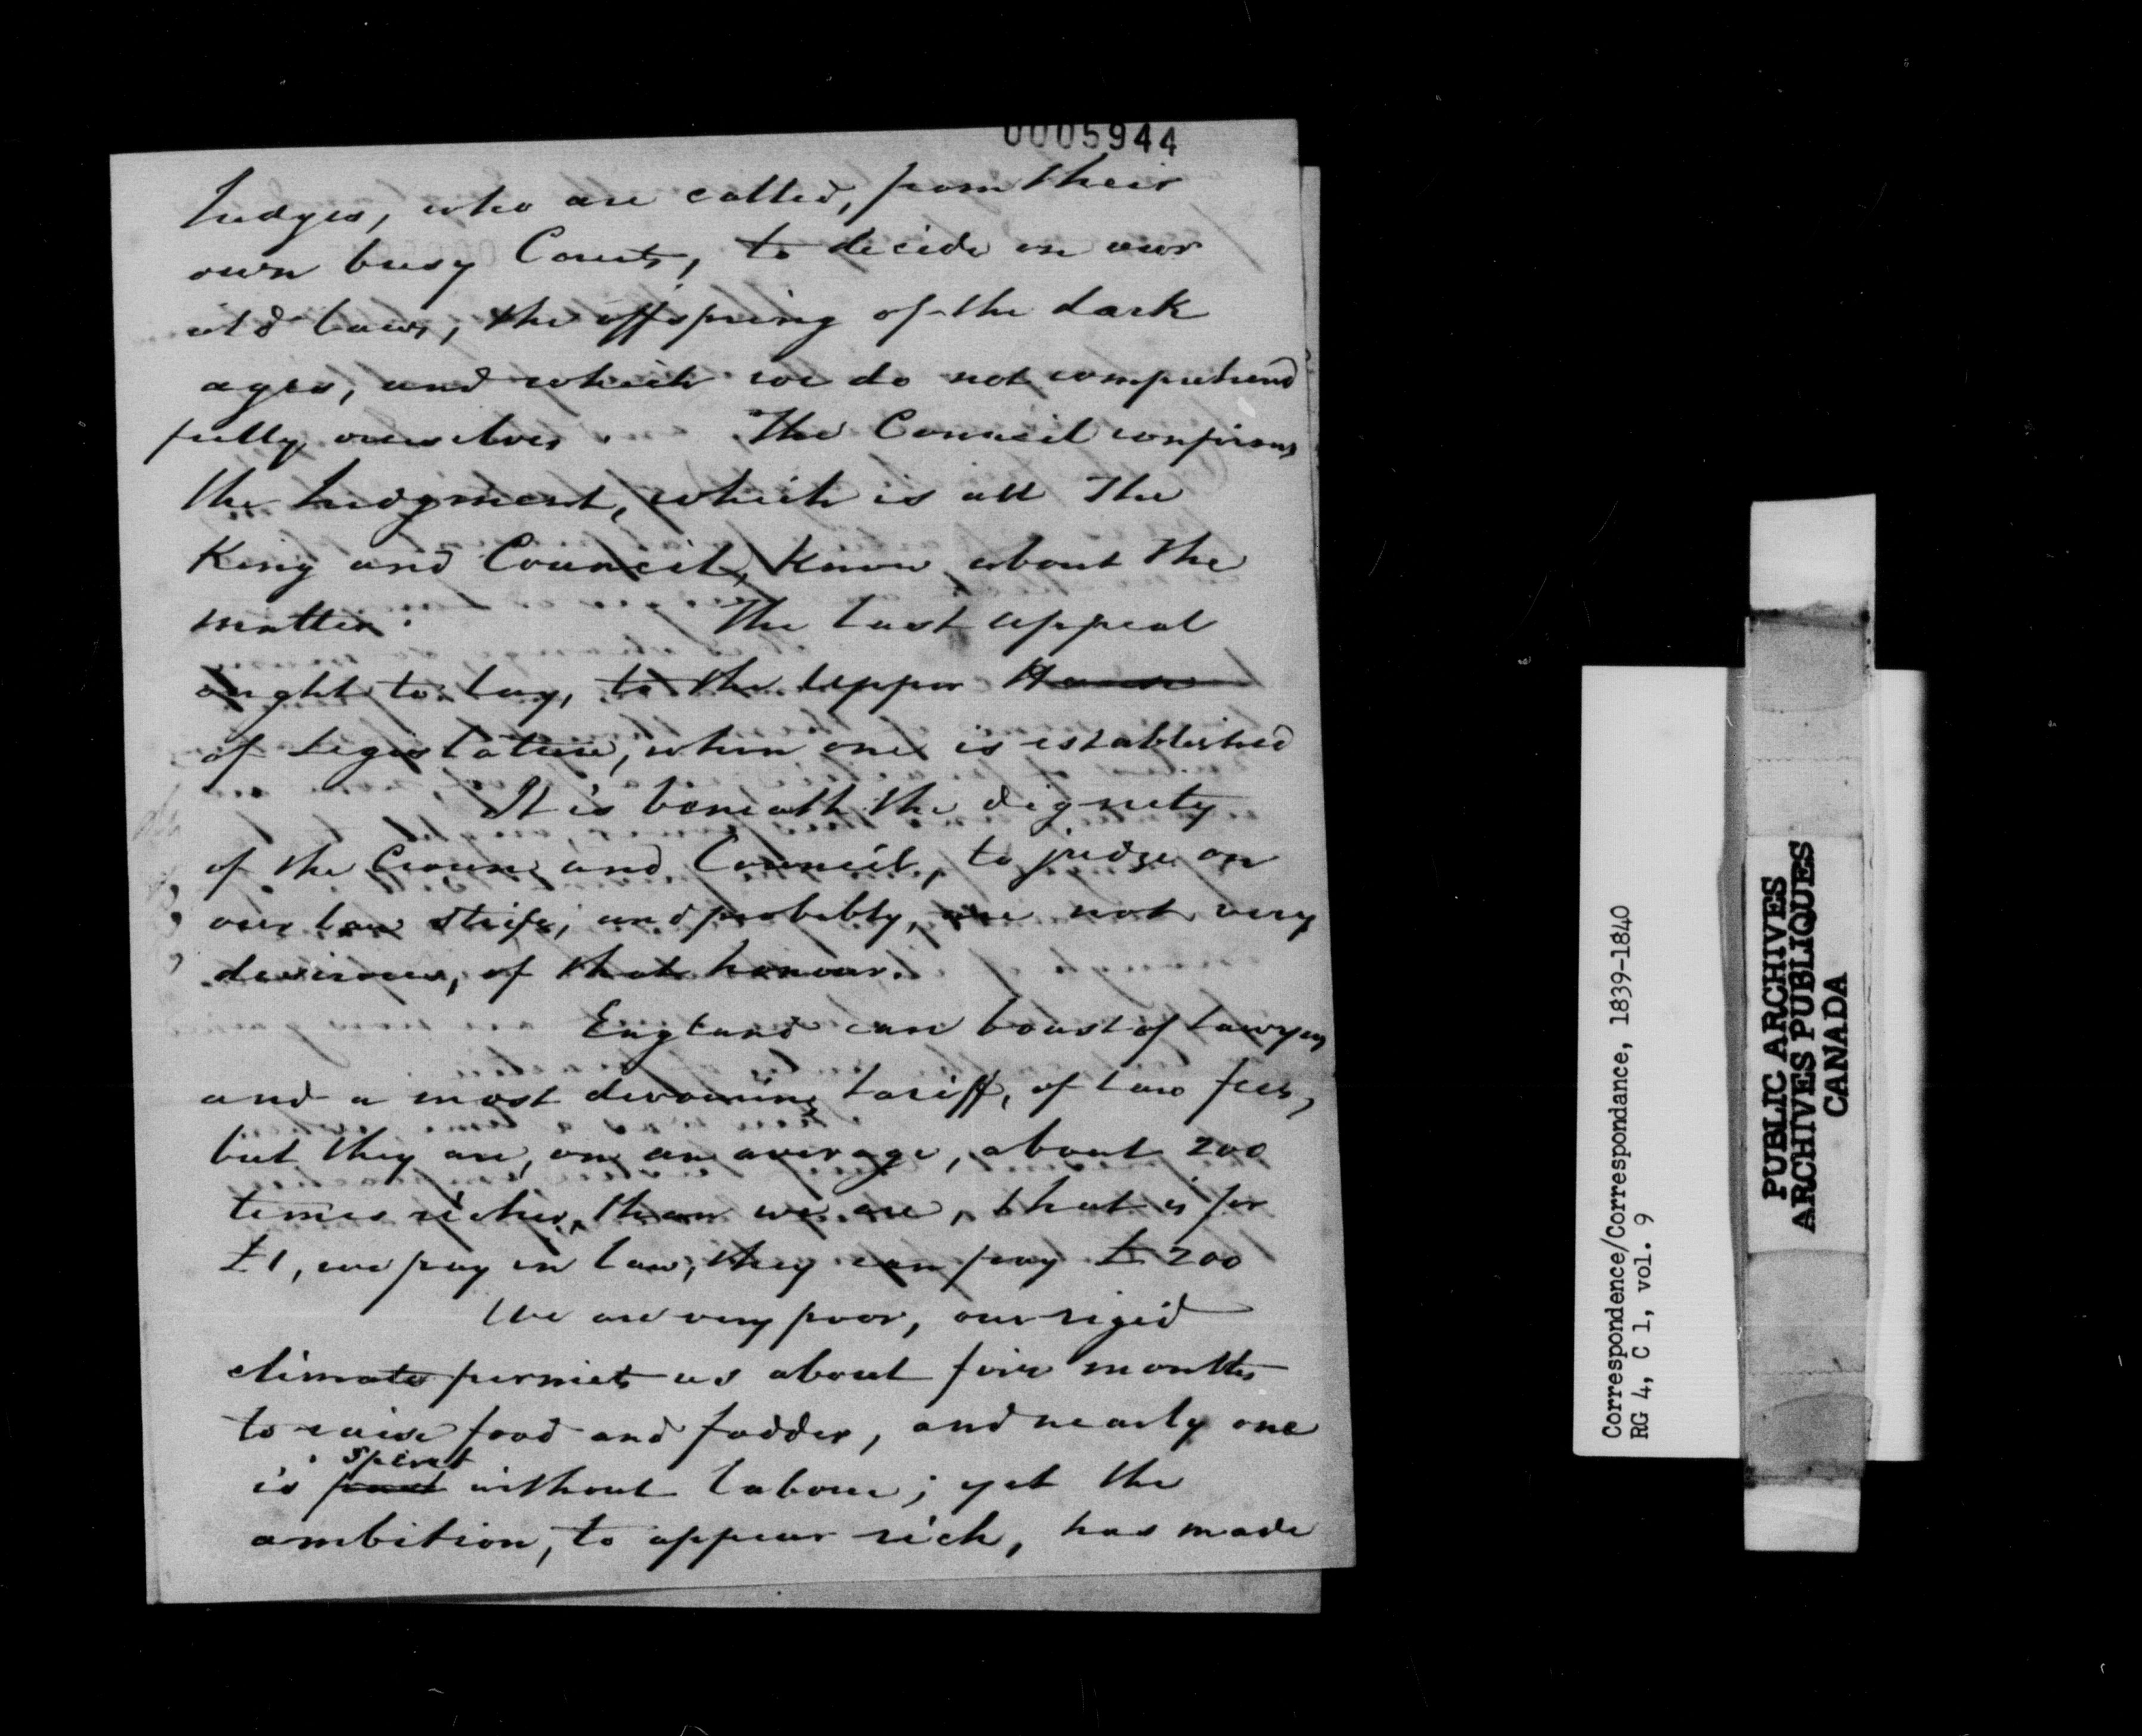 0005944
Judges, who are called, from their
own busy Courts, to decide on our
old laws, the offspring of the dark
ages, and which we do not comprehend
fully ourselves. The Council confirms
the Judgment, which is all the
King and Council, know about the
matter. The last appeal
ought to lay, to the Upper House
of Legislature, when one is established
It is beneath the dignity
of the Crown and Council, to judge on
our law strife, and probably, are not very
desirous, of that honour.
England can boast of Lawyers
and a most devouring tariff, of law fees,
but they are, on an average, about 200
times richer, than we are, that is for
£1, we pay in law, they can pay £200
We are very poor, our rigid
climate permits us about five months
to raise food and fodder, and nearly one
spent
is without labour; yet the
ambition, to appear rich, has made
Correspondence/Correspondance, 1839-1840
RG 4, C 1, vol. 9
PUBLIC ARCHIVES
ARCHIVES PUBLIQUES
CANADA